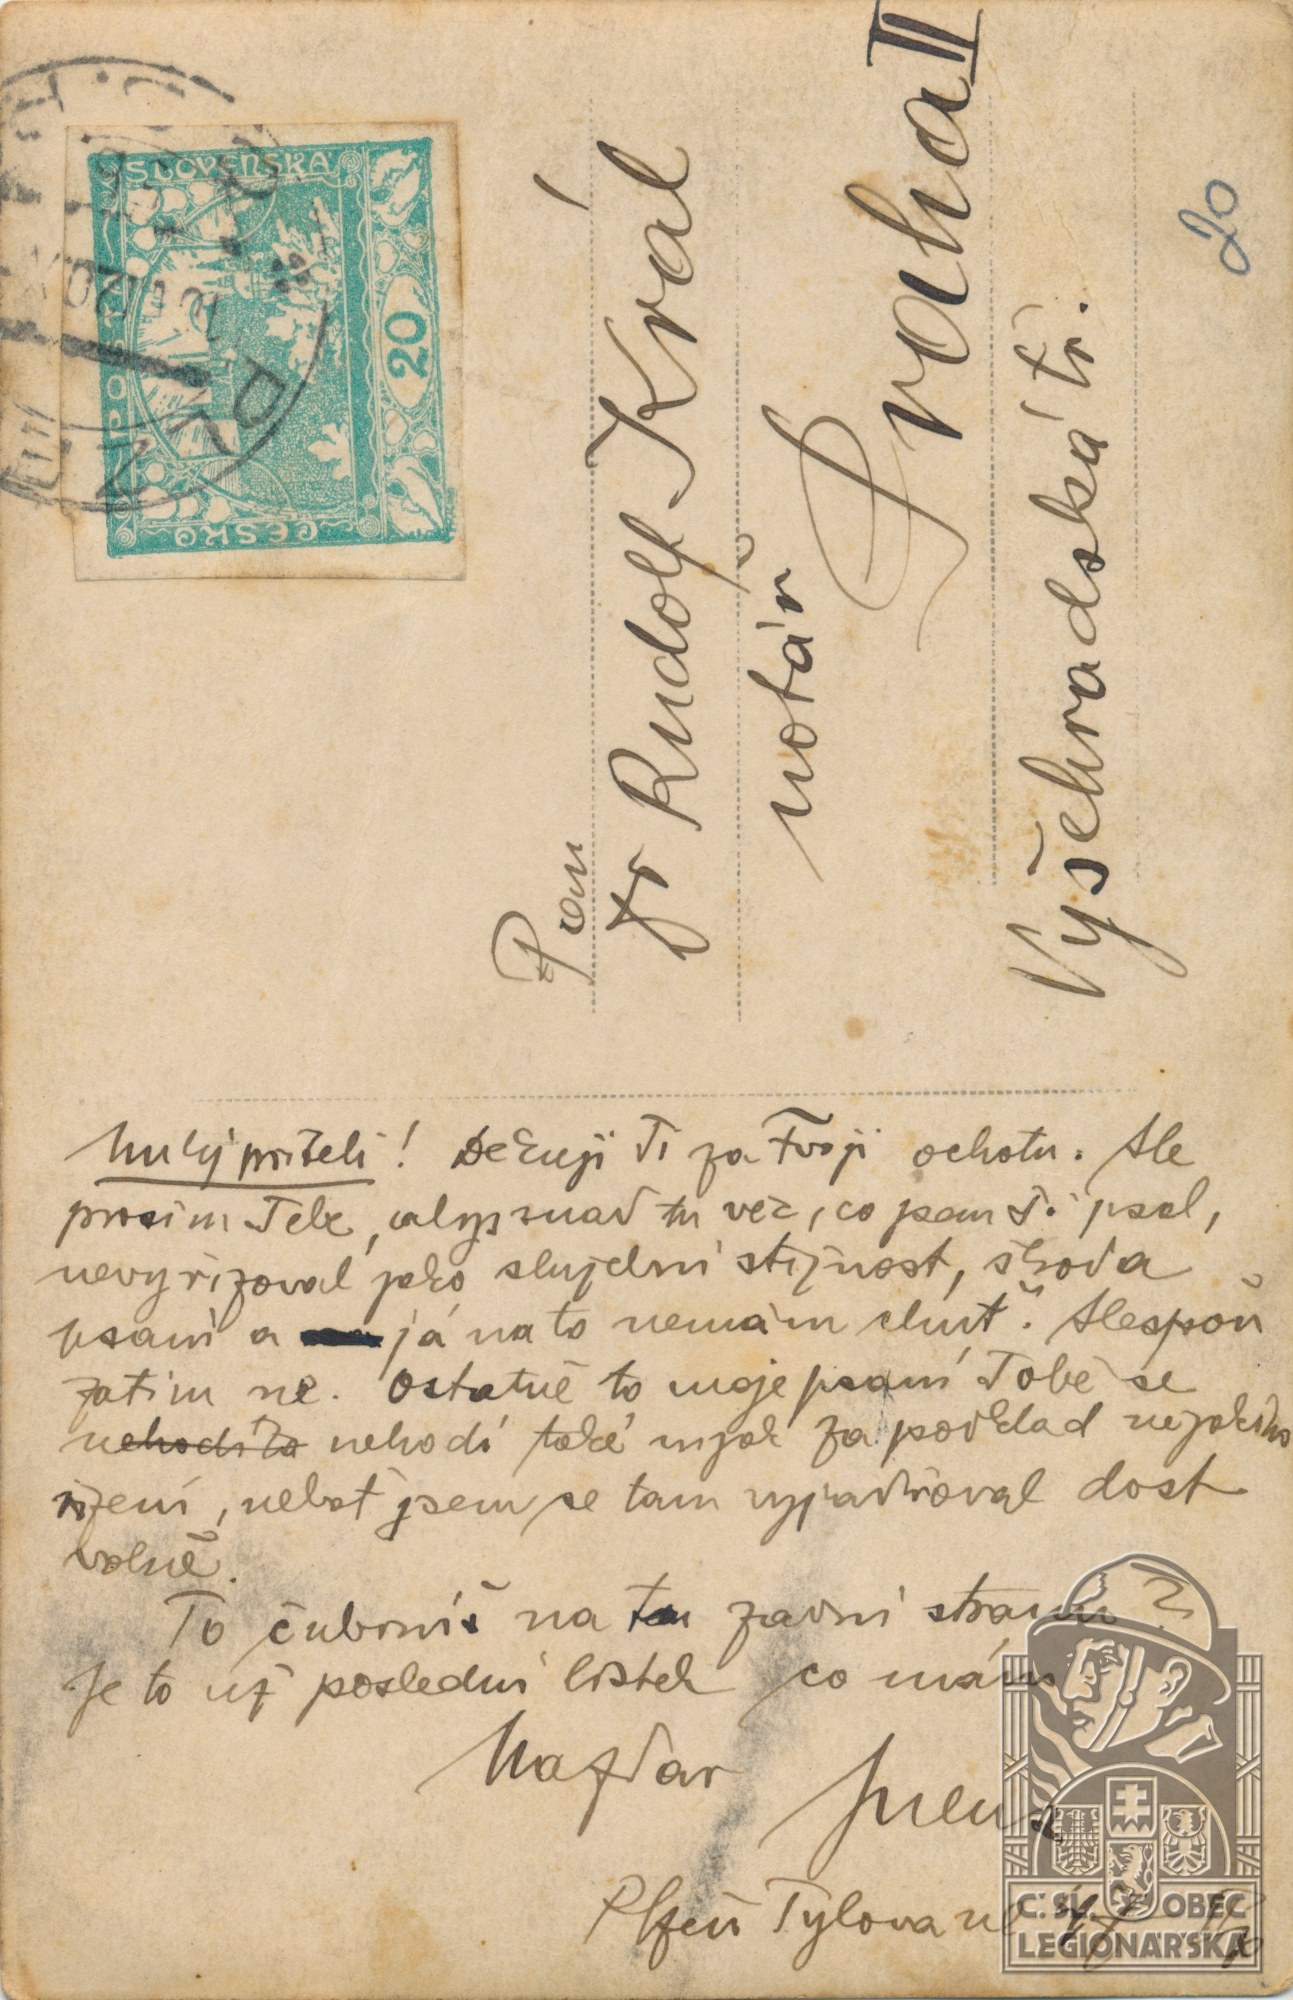 Pan
Dr Rudolf Král
notář
Praha II
Vyšehradská tř.
20
ČESKO
SLOVENSKÁ
POŠTA
20
PLZ
Milý příteli! Děkuji Ti za Tvoji ochotu. Ale
prosím Tebe, abys snad tu věc, co jsem Ti psal,
nevyřizoval jako služební stížnost, škoda
psaní a já na to nemám chuť. Alespoň
zatím ne. Ostatně to moje psaní Tobě se
nehodilo nehodí také nijak za podklad nějakého
řízení, neboť jsem se tam vyjadřoval dost
volně.
To čubrníš na tu zadní stranu?
Je to už poslední lístek co mám
Nazdar
Plzeň Tylova ul
Č. SL. OBEC
LEGIONÁŘSKÁ